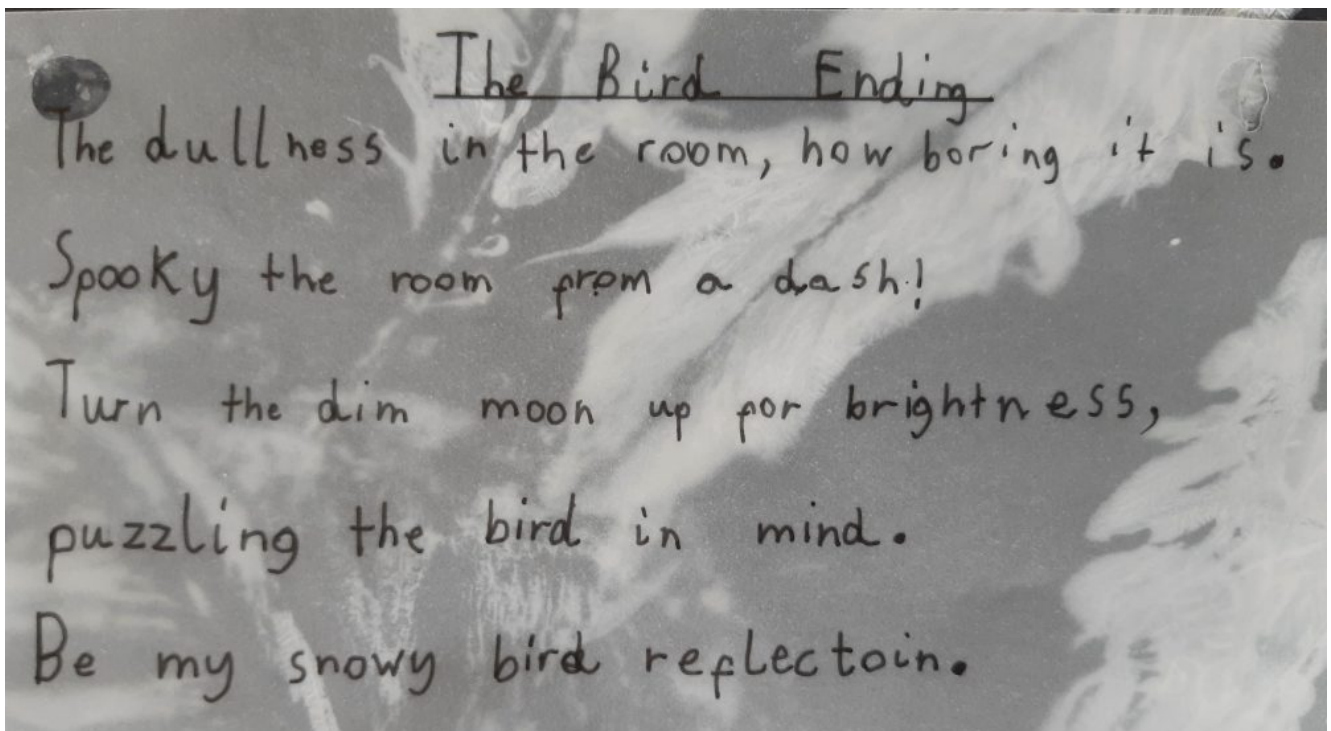 The Bird Ending
The dullness in the room, how boring it is.
Spooky the room from a dash!
Turn the dim moon up for brightness,
puzzling the bird in mind.
Be my snowy bird reflectoin.